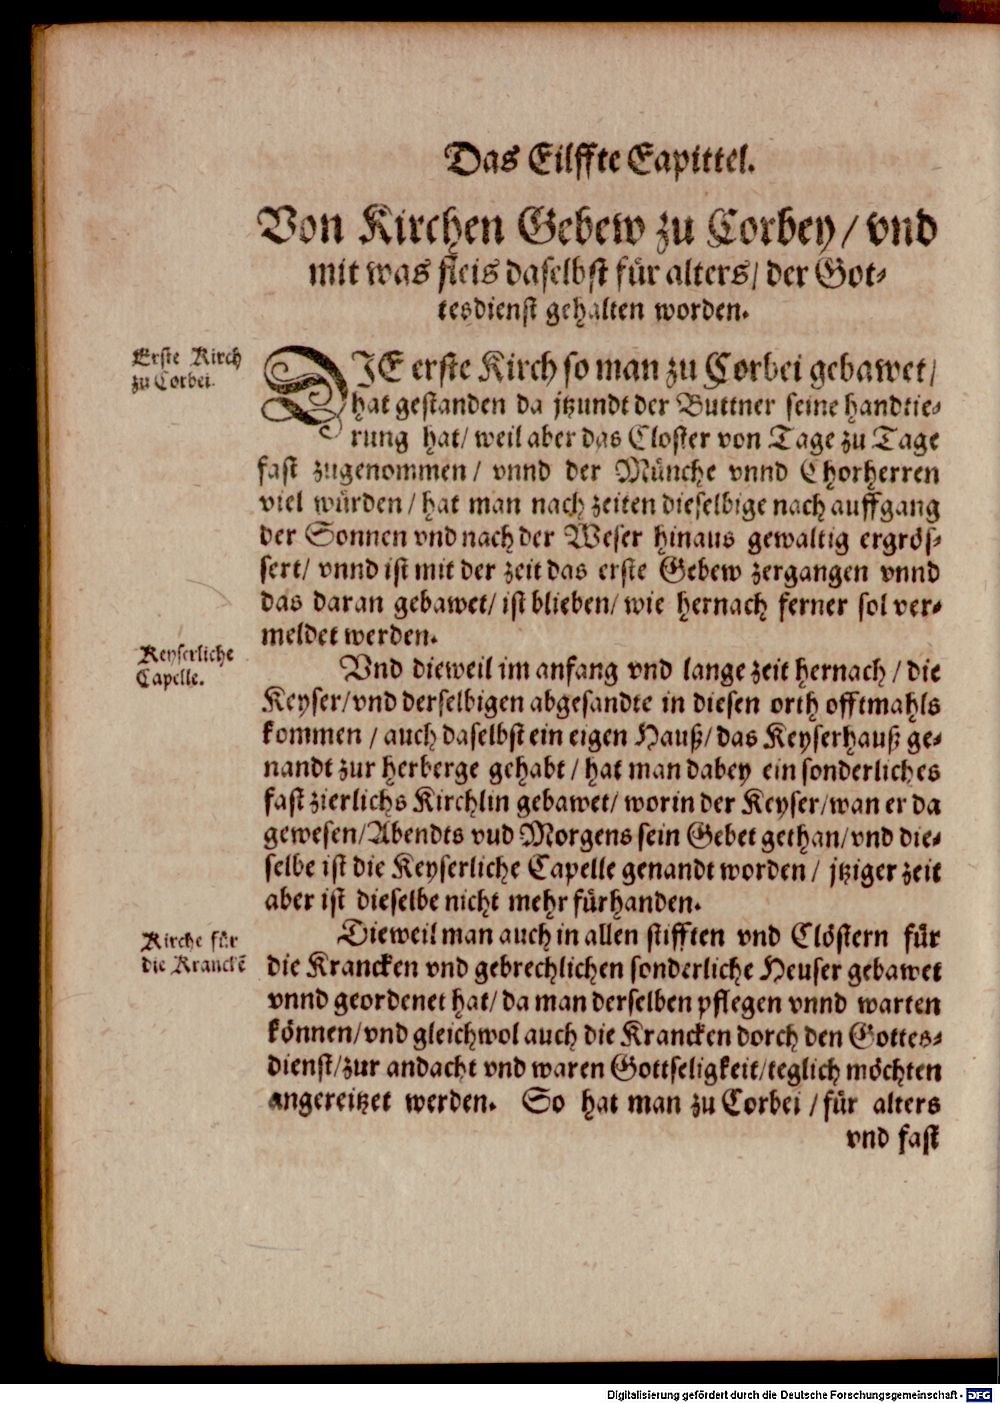 Das Eilffte Capittel.
Von Kirchen Gebew zu Corbey / vnd
mit was fleis daselbst für alters / der Got-
tesdienst gehalten worden.
Erste Kirch
zu Corbei.
DIE erste Kirch so man zu Corbei gebawet /
hat gestanden da jtzundt der Buttner seine handtie-
rung hat / weil aber das Closter von Tage zu Tage
fast zugenommen / vnnd der Münche vnnd Chorherren
viel würden / hat man nach zeiten dieselbige nach auffgang
der Sonnen vnd nach der Weser hinaus gewaltig ergrös-
sert / vnnd ist mit der zeit das erste Gebew zergangen vnnd
das daran gebawet / ist blieben / wie hernach ferner sol ver-
meldet werden.
Keyserliche
Capelle.
Vnd dieweil im anfang vnd lange zeit hernach / die
Keyser / vnd derselbigen abgesandte in diesen orth offtmahls
kommen / auch daselbst ein eigen Hauß / das Keyserhauß ge-
nandt zur herberge gehabt / hat man dabey ein sonderliches
fast zierlichs Kirchlin gebawet / worin der Keyser / wan er da
gewesen / Abendts vud Morgens sein Gebet gethan / vnd die-
selbe ist die Keyserliche Capelle genandt worden / jtziger zeit
aber ist dieselbe nicht mehr fürhanden.
Kirche für
die Kranckē
Dieweil man auch in allen stifften vnd Clöstern für
die Krancken vnd gebrechlichen sonderliche Heuser gebawet
vnnd geordenet hat / da man derselben pflegen vnnd warten
können / vnd gleichwol auch die Krancken dorch den Gottes-
dienst / zur andacht vnd waren Gottseligkeit / teglich möchten
angereitzet werden. So hat man zu Corbei / für alters
vnd fast
Digitalisierung gefördert durch die Deutsche Forschungsgemeinschaft - DFG